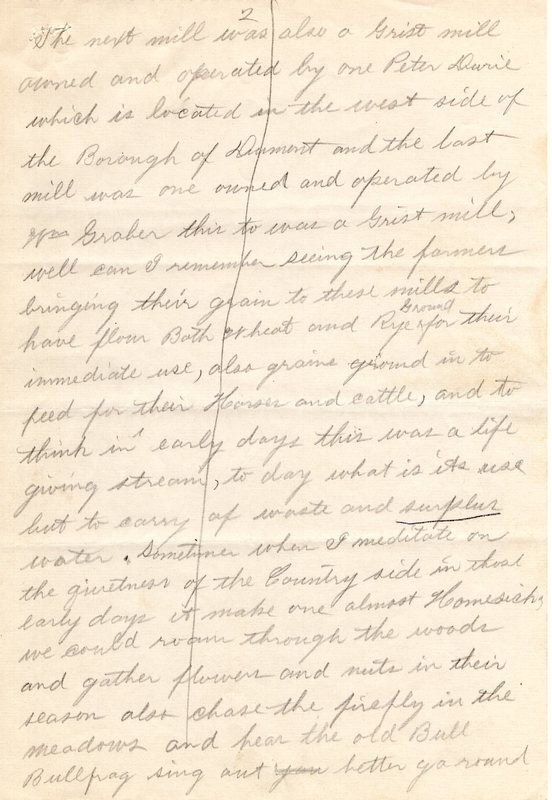 2
The next mill was also a Grist mill
owned and operated by one Peter Durie
which is located in the west side of
the Borough of Dumont and the last
mill was one owned and operated by
Wm Graber this to was a Grist mill,
well can I remember seeing the farmers
bringing their grain to these mills to
Ground
have flour Both Wheat and Rye for their
immediate use, also grains ground in to
feed for their Horses and cattle, and to
think in early days this was a life
giving stream, to day what is its use
but to carry of waste and surplus
water. Sometimes when I meditate on
the quietness of the Country side in those
early days it make one almost Homesick,
we could roam through the woods
and gather flowers and nuts in their
season also chase the firefly in the
meadows and hear the old Bull
Bullfrog sing out you better go round